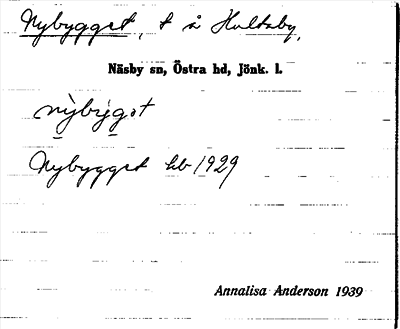 Nybygget, t å Hultaby,
Näsby sn, Östra hd, Jönk. l.
nỳbýgət
Nybygget hb 1929
Annalisa Anderson 1939